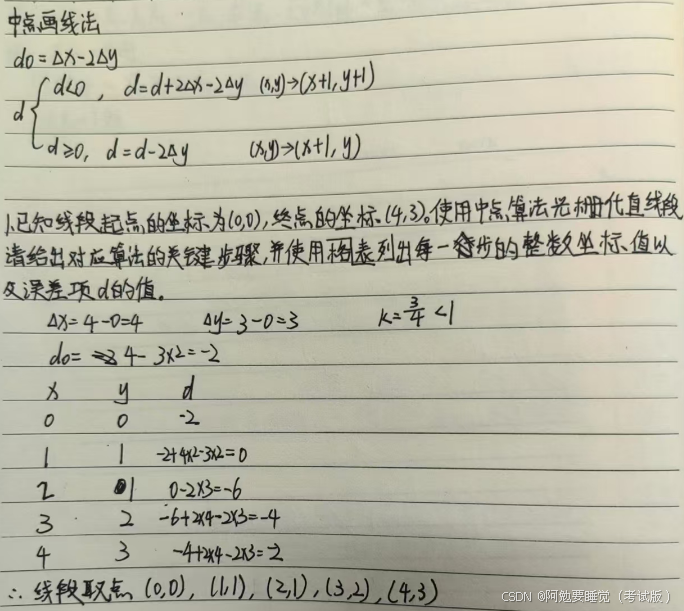 中点画线法
d0=Δx-2Δy
d { d<0, d=d+2Δx-2Δy (x,y)→(x+1,y+1)
d≥0, d=d-2Δy (x,y)→(x+1,y)
1.已知线段起点的坐标为(0,0),终点的坐标(4,3)。使用中点算法光栅化直线段
请给出对应算法的关键步骤,并使用图表列出每一步的整数坐标值以
及误差项d的值。
Δx=4-0=4 Δy=3-0=3 k=3/4<1
d0=4-3×2=-2
x y d
0 0 -2
1 1 -2+4×2-3×2=0
2 1 0-2×3=-6
3 2 -6+2×4-2×3=-4
4 3 -4+2×4-2×3=-2
∴线段取点(0,0),(1,1),(2,1),(3,2),(4,3)
CSDN @阿勉要睡觉(考试版)